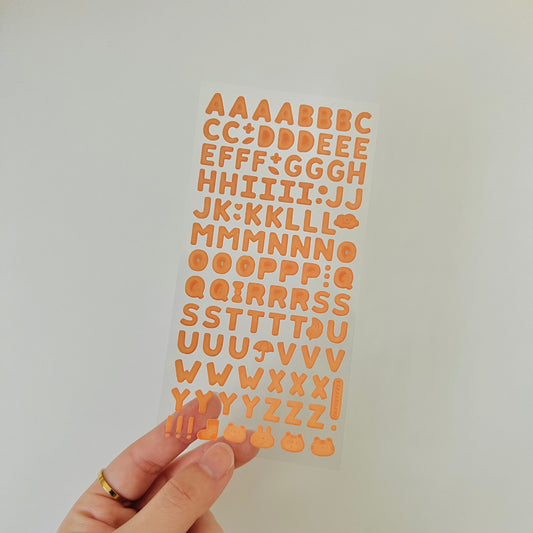 AAAABBBC
CCDDDEEE
EFFFGGGH
HHIIII:JJ
JKKKLLL
MMMNNNO
OOOPPPQ
QQRRRSS
SSTTTTU
UUUVVV
WWWXXX
YYYYZZZ
!!!